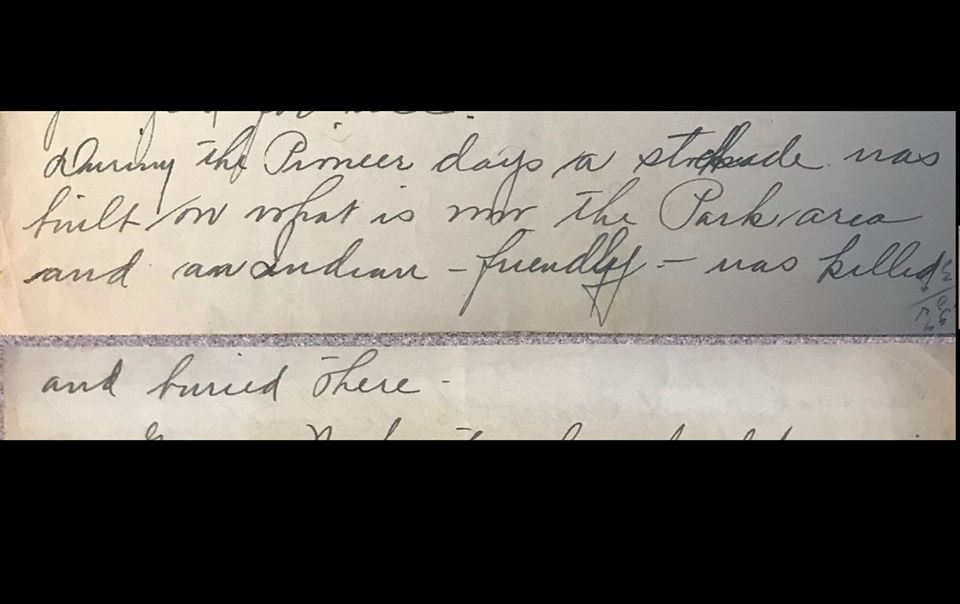 During the Pioneer days a stockade was
built on what is now the Park area
and an Indian - friendly - was killed
and buried there -